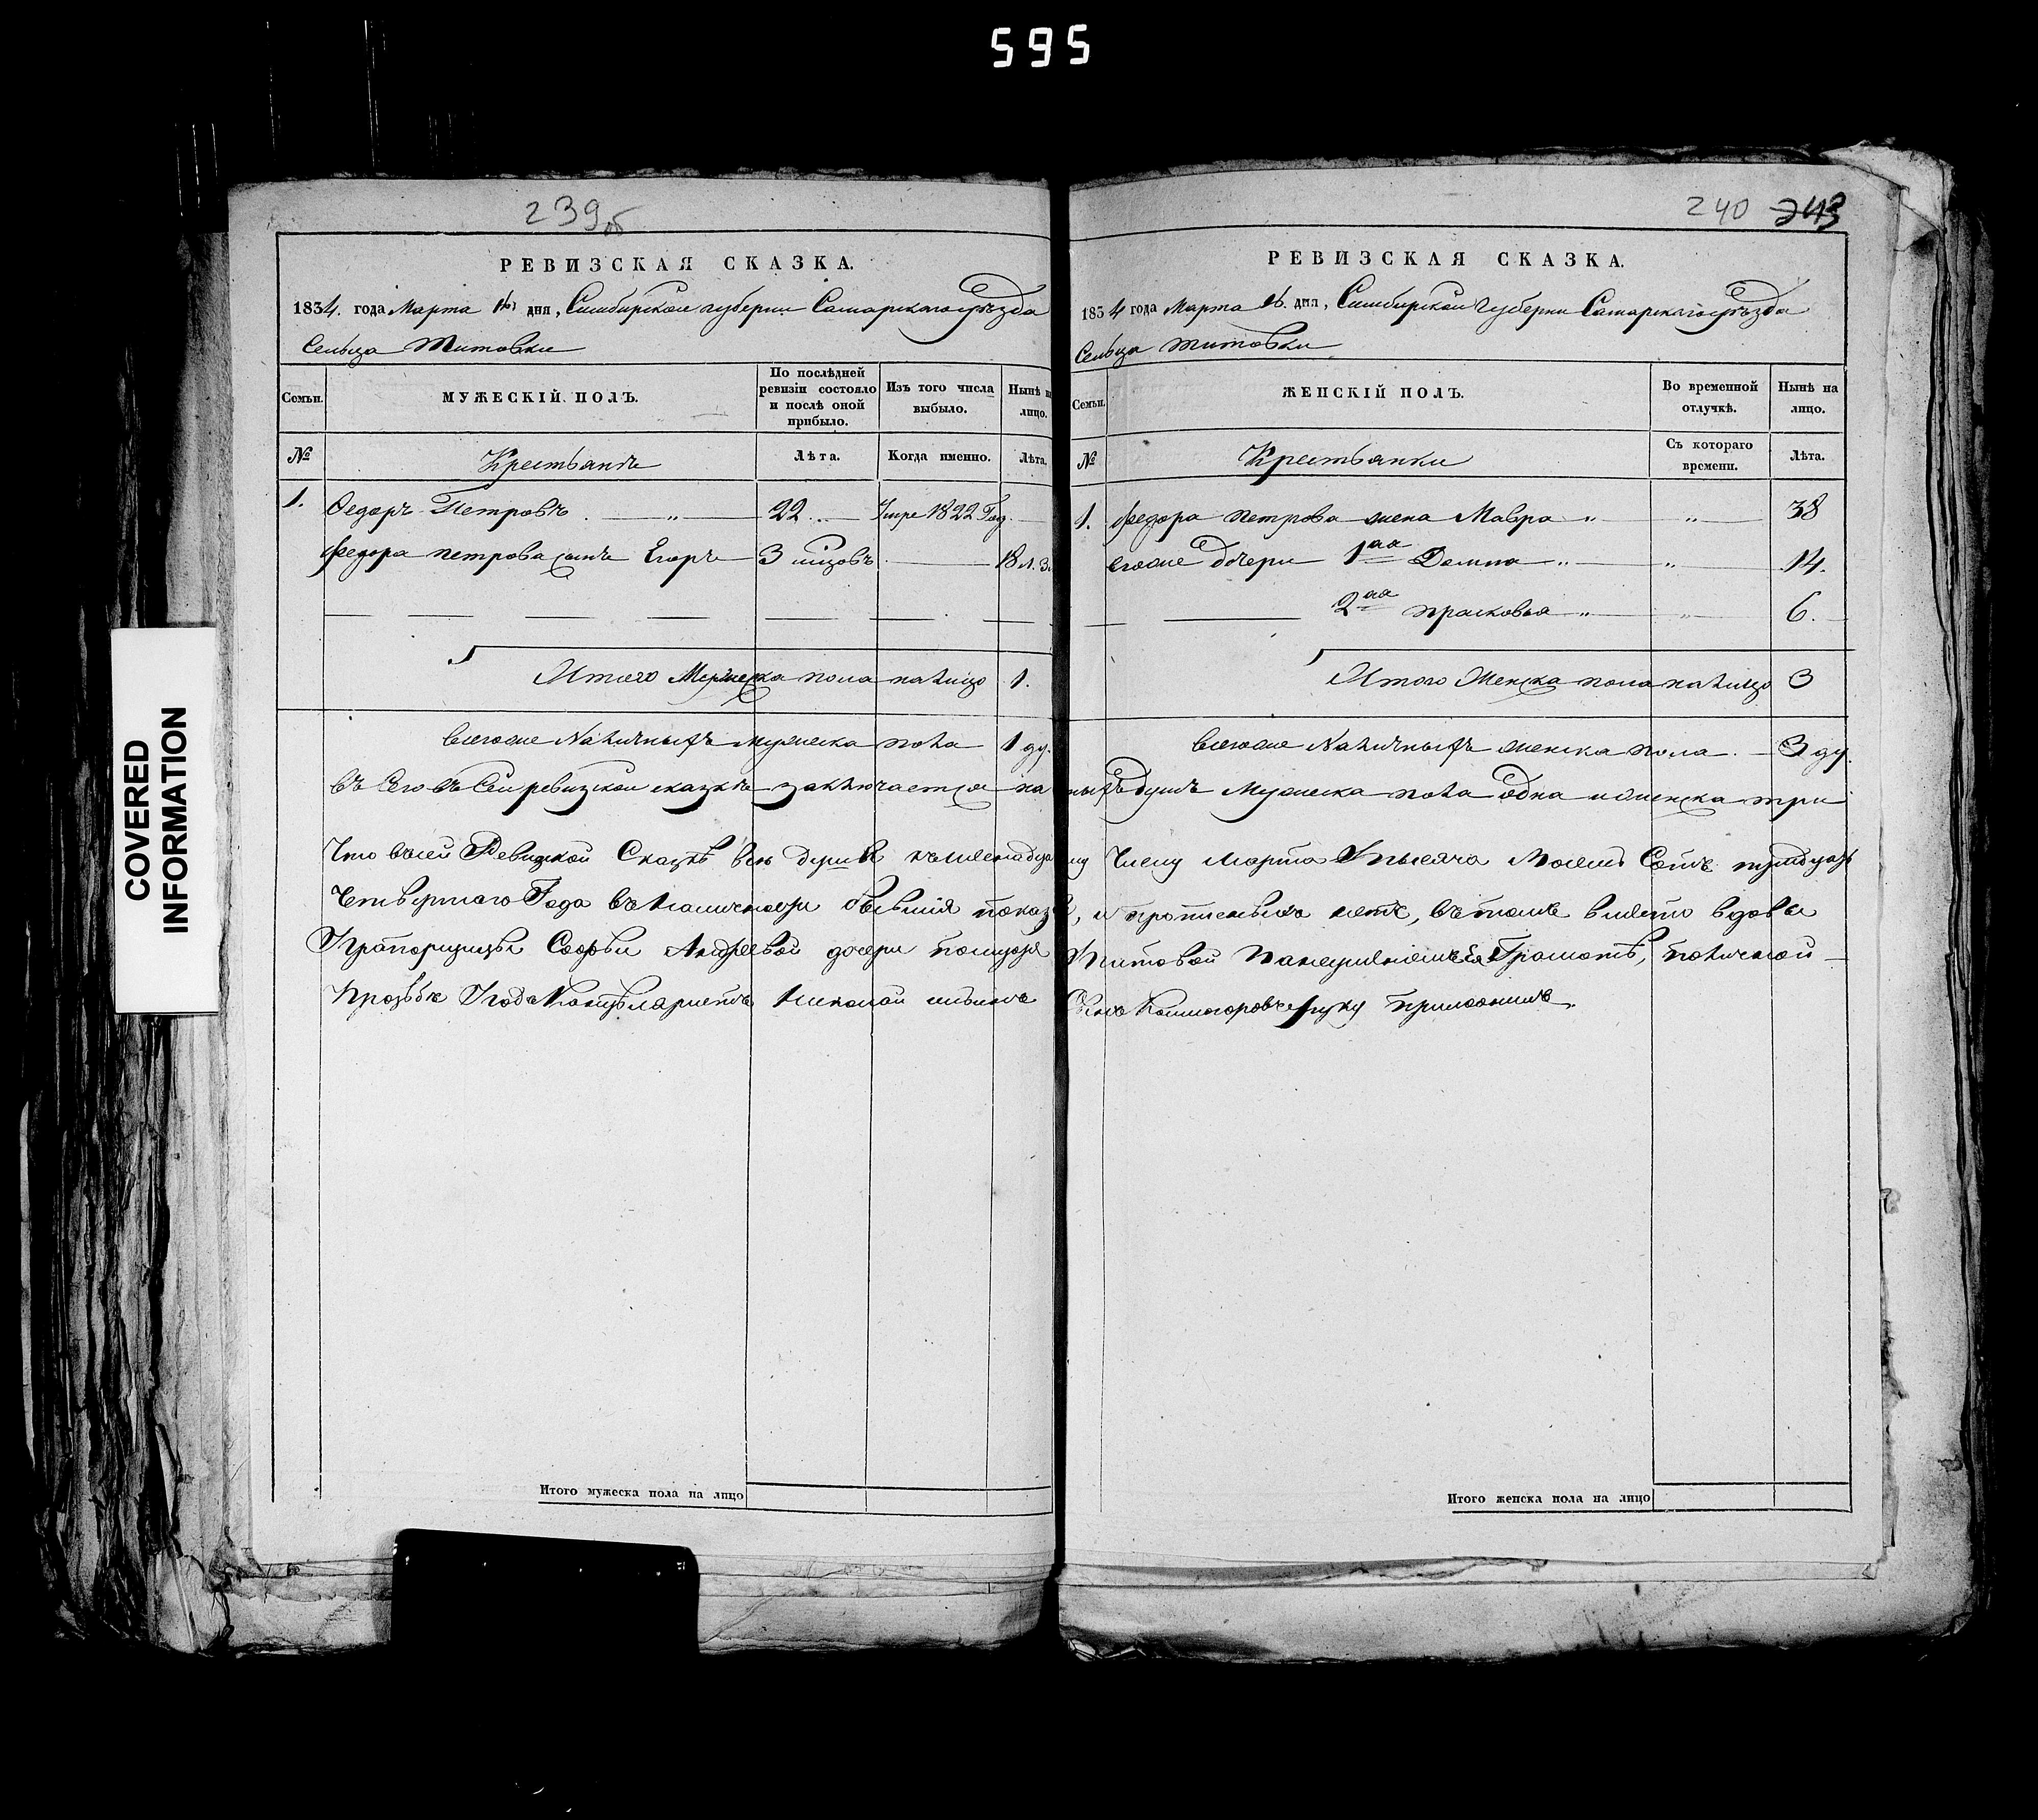 595
COVERED
INFORMATION
239об
РЕВИЗСКАЯ СКАЗКА.
1834. года Марта дня, Симбирской губернии Самарского уѣзда
Сельца Титовки
Семьи.
МУЖЕСКІЙ ПОЛЪ.
По послѣдней ревизіи состояло и послѣ оной прибыло.
Изъ того числа выбыло.
Нынѣ на лицо.
№
Крестьянѣ
Лѣта.
Когда именно.
Лѣта.
1. Федоръ Петровъ 22 Умре 1822 Год
Федора петрова сынъ Егоръ 3 мцовъ 18 л. 3
Итого Мужеска пола налицо 1.
всегоже Наличныхъ мужеска пола 1 ду.
240 243
РЕВИЗСКАЯ СКАЗКА.
1834 года Марта дня, Симбирской Губерни Самарского уѣзда
Сельца титовки
Семьи.
ЖЕНСКІЙ ПОЛЪ.
Во временной отлучкѣ.
Нынѣ на лицо.
№
Крестьянки
Съ котораго времени.
Лѣта.
1. Федора петрова жена Мавра 38
егоже дочери 1ая Домна 14.
2ая прасковья 6.
Итого Женска пола налицо 3
всегоже Наличныхъ женска пола 3 ду.
въ сей ревизской сказкѣ заключается наличныхъ душъ Мужеска пола одна и женска три
Что въ сей Ревизкой Сказкѣ все души к Числу Марта тысяча Восемь Сотъ тридцать
Четвертаго Года бывшия показаны, и прописныхъ нетъ, въ томъ вместо вдовы
Прапорщицы Софьи Андреевой дочери помещицы Титовой Грамотѣ, по личной
прозьбѣ Канцеляристъ Николай руку приложилъ.
Итого мужеска пола на лицо
Итого женска пола на лицо